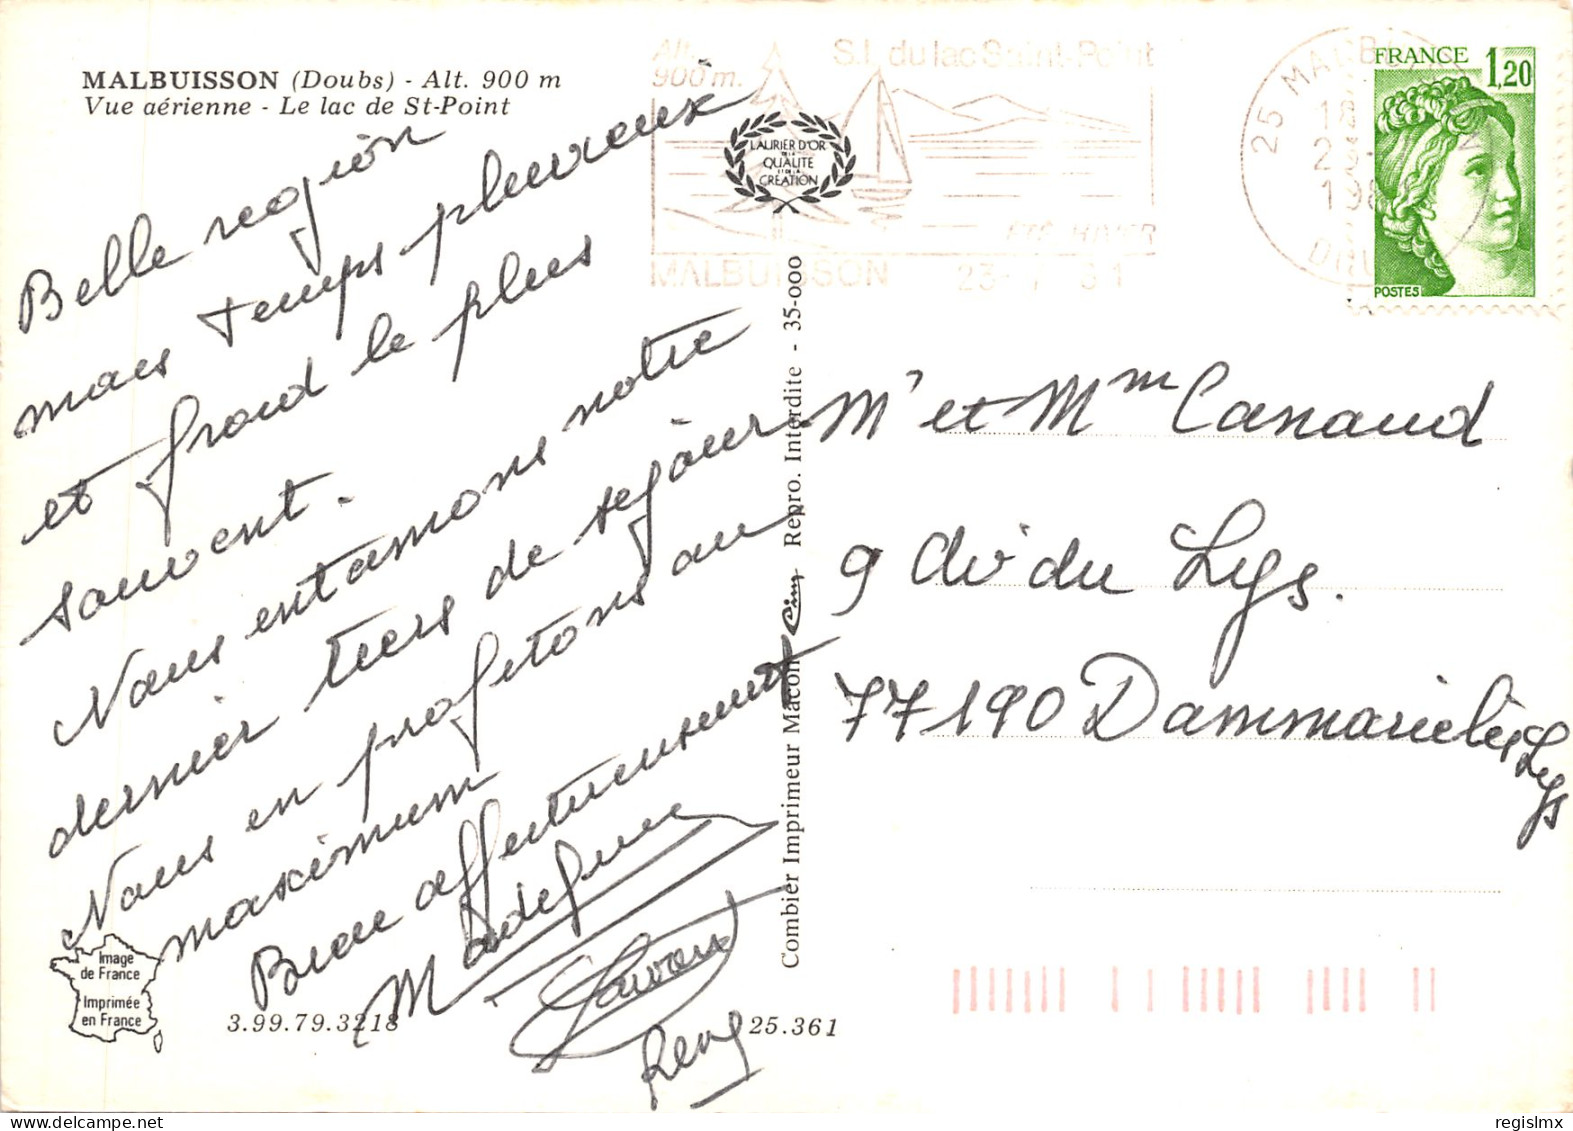 MALBUISSON (Doubs) - Alt. 900 m
Vue aérienne - Le lac de St-Point
Belle region
mais temps pluvieux
et froid le plus
souvent.
Nous entamons notre
dernier tiers de sejour
Nous en profitons au
maximum
Bien affectueusement
Remy
Image
de France
Imprimée
en France
3.99.79.3218
25.361
Combier Imprimeur Macon Cim Repro. Interdite - 35-000
LAURIER D'OR
DE LA
QUALITE
ET DE LA
CREATION
Alt.
900 m.
S.I. du lac Saint-Point
ETE HIVER
MALBUISSON
25 MALBUISSON
DOUBS
FRANCE
1,20
POSTES
Mr et Mme Canaud
9 av du Lys.
77190 Dammarie les Lys
regislmx